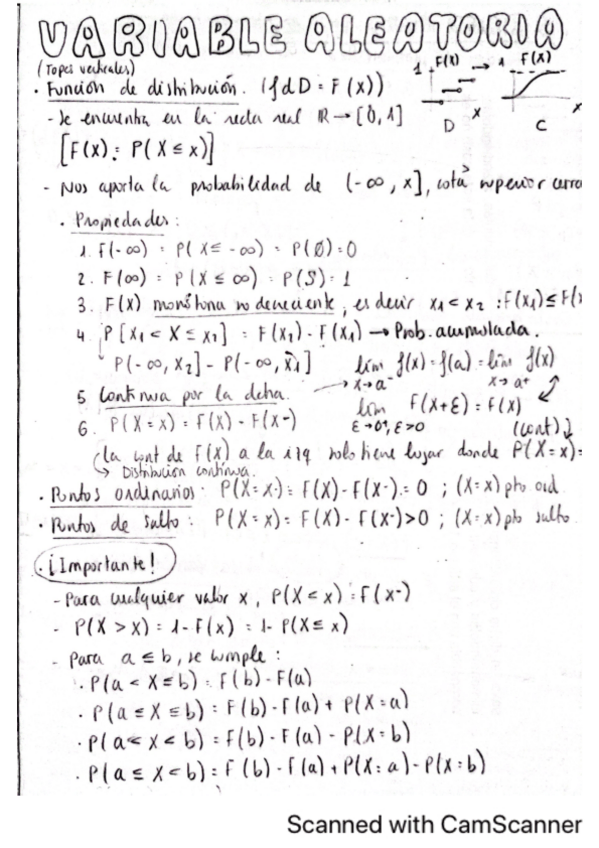 VARIABLE ALEATORIA
(Topes verticales)
· Función de distribución. (f d D = F(x))
1 F(x) → 1 F(x)
x x
D C
- Se encuentra en la recta real ℝ → [0,1]
[F(x) = P(X ≤ x)]
- Nos aporta la probabilidad de (-∞, x], cota superior cerra
· Propiedades:
1. F(-∞) = P(X ≤ -∞) = P(∅) = 0
2. F(∞) = P(X ≤ ∞) = P(S) = 1
3. F(x) monótona no decreciente, es decir x1 < x2 : F(x1) ≤ F(
4. P[x1 < X ≤ x2] = F(x2) - F(x1) → Prob. acumulada.
P(-∞, x2] - P(-∞, x1]
lim f(x) = f(a) = lim f(x)
x→a⁻ x→a⁺
5. Continua por la dcha.
lim F(x+ε) = F(x)
ε→0⁺, ε>0 (cont)
6. P(X = x) = F(x) - F(x-)
(la cont de F(x) a la izq solo tiene lugar donde P(X = x) =
↳ Distribución continua.
· Puntos ordinarios: P(X = x) = F(x) - F(x-) = 0 ; (X = x) pto ord.
· Puntos de salto: P(X = x) = F(x) - F(x-) > 0 ; (X = x) pto salto.
· ¡Importante!
- Para cualquier valor x, P(X < x) = F(x-)
- P(X > x) = 1 - F(x) = 1 - P(X ≤ x)
- Para a ≤ b, se cumple:
· P(a < X ≤ b) = F(b) - F(a)
· P(a ≤ X ≤ b) = F(b) - F(a) + P(X = a)
· P(a < X < b) = F(b) - F(a) - P(X = b)
· P(a ≤ X < b) = F(b) - F(a) + P(X = a) - P(X = b)
Scanned with CamScanner